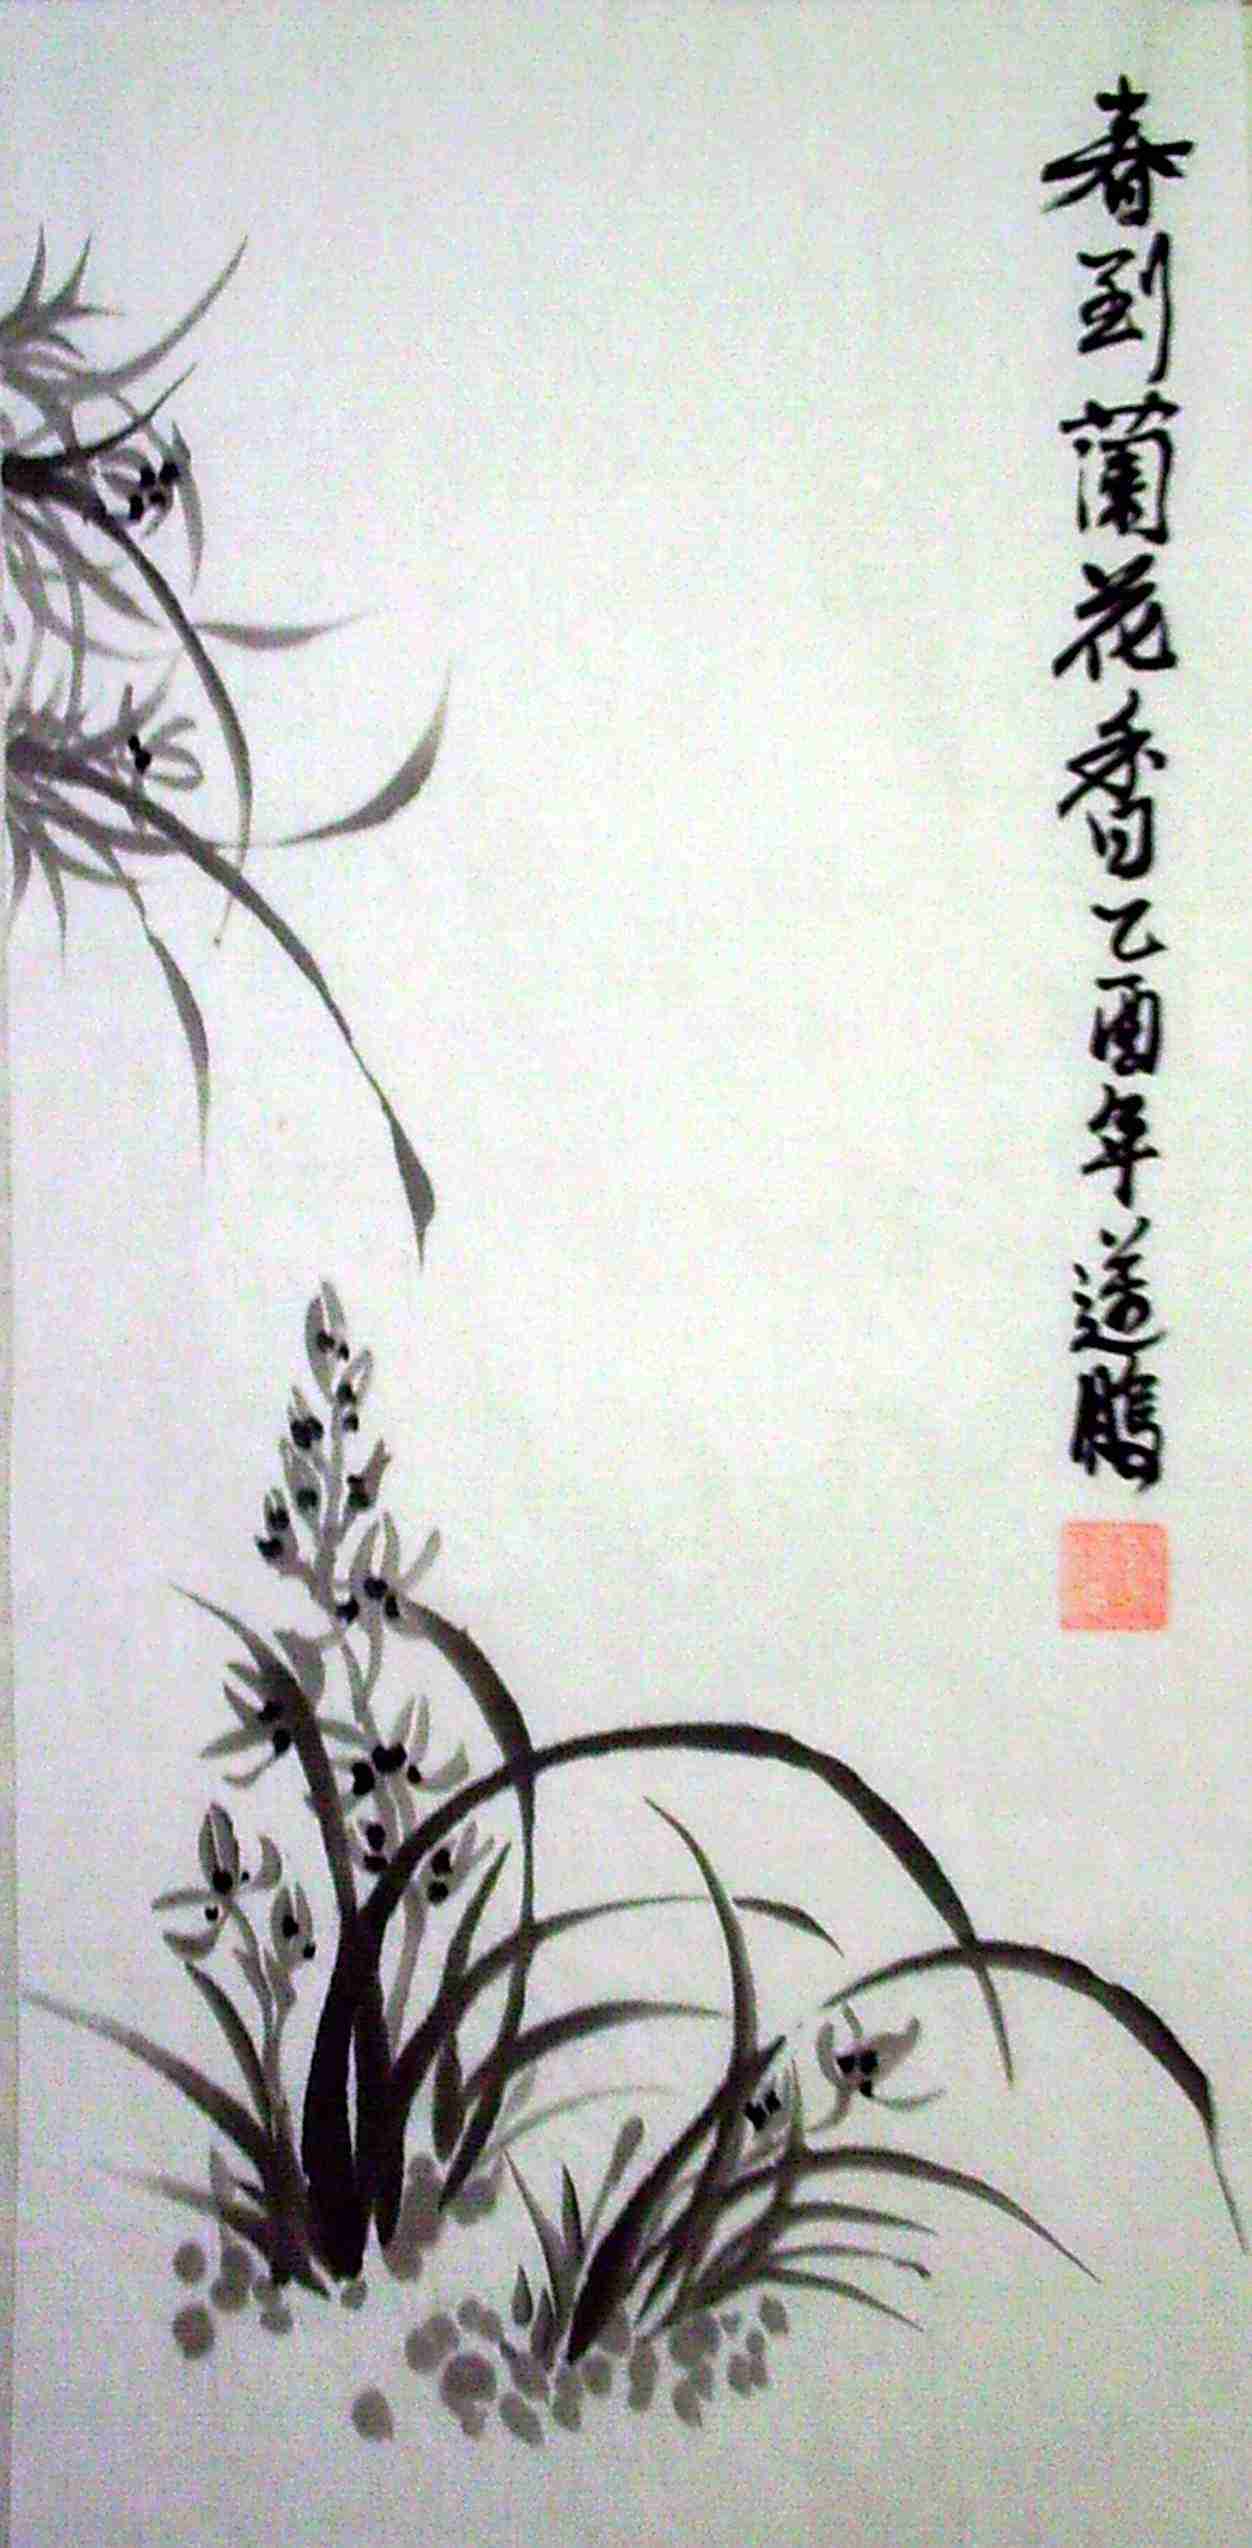 春到蘭花香乙酉年